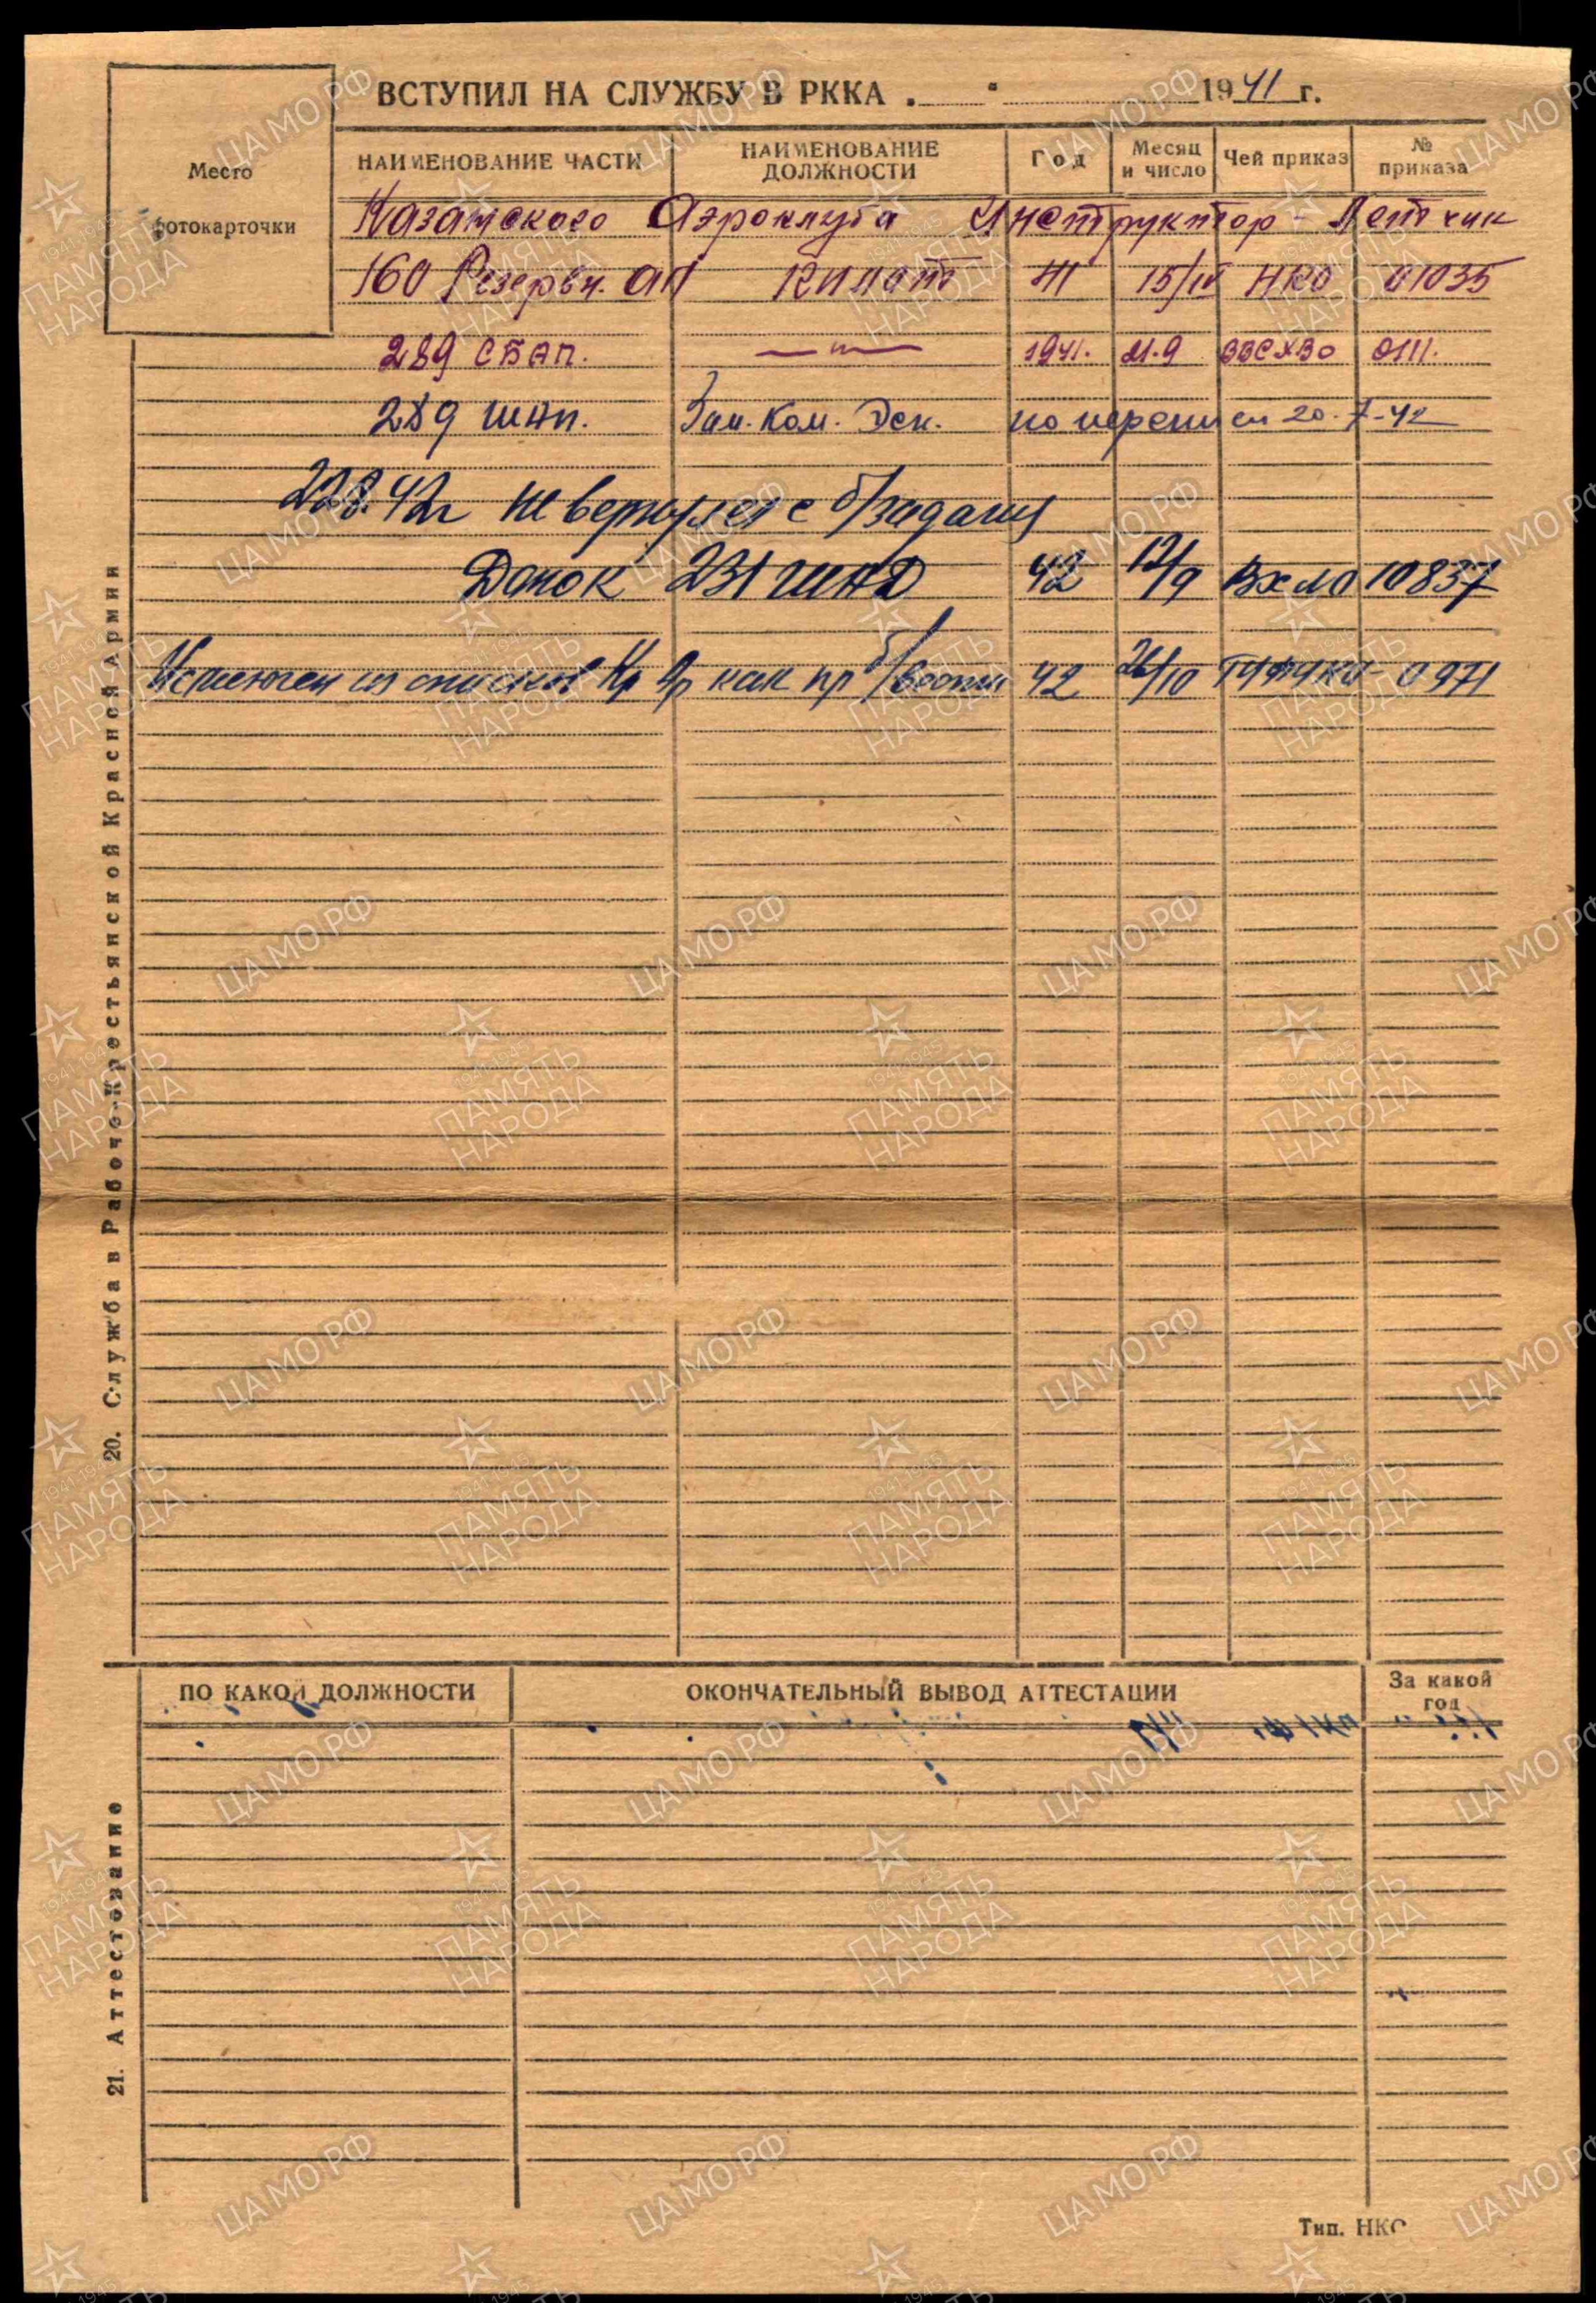 ВСТУПИЛ НА СЛУЖБУ В РККА 1941 г.
Место
фотокарточки
НАИМЕНОВАНИЕ ЧАСТИ
НАИМЕНОВАНИЕ ДОЛЖНОСТИ
Год
Месяц и число
Чей приказ
№ приказа
Аэроклуба Инструктор - Летчик
160 Резервн. ап Пилот 41 15/IV НКО 01035
289 СБАП. —"— 1941. 21.9 ВВС ХВО 0111.
289 шап. Зам. Ком. Эск. по переписи 20-7-42
22.8.42г не вернулся с б/задания
Донес 231 ШАД 42 12/9 Вх № 10837
Исключен из списков Кр Ар как пр б/вести 42 26/10 0971
20. Служба в Рабоче-Крестьянской Красной Армии
ПО КАКОЙ ДОЛЖНОСТИ
ОКОНЧАТЕЛЬНЫЙ ВЫВОД АТТЕСТАЦИИ
За какой год
21. Аттестование
Тип. НКО
ЦАМО.РФ
1941-1945
ПАМЯТЬ
НАРОДА